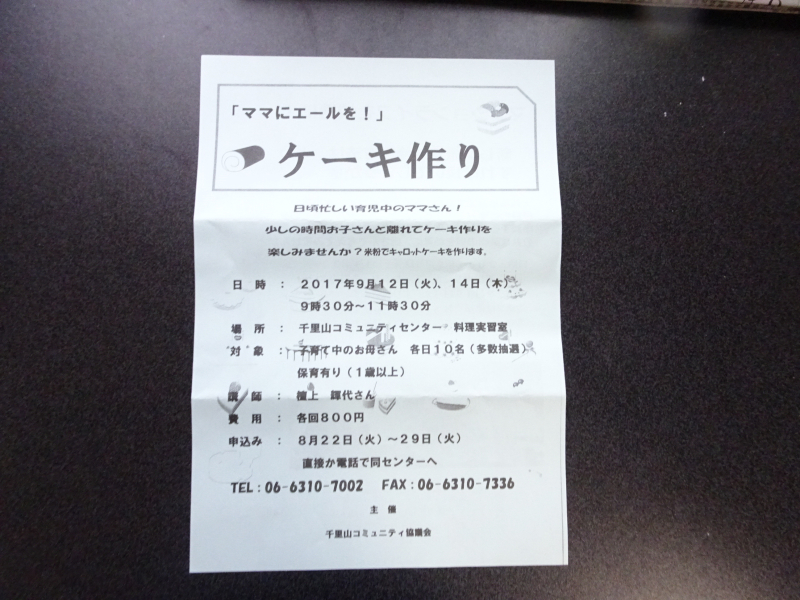 「ママにエールを！」
ケーキ作り
日頃忙しい育児中のママさん！
少しの時間お子さんと離れてケーキ作りを
楽しみませんか？米粉でキャロットケーキを作ります。
日　時　：　２０１７年９月１２日（火）、１４日（木）
９時３０分～１１時３０分
場　所　：　千里山コミュニティセンター　料理実習室
対　象　：　子育て中のお母さん　各日１０名（多数抽選）
保育有り（１歳以上）
講　師　：　檀上　代さん
費　用　：　各回８００円
申込み　：　８月２２日（火）～２９日（火）
直接か電話で同センターへ
TEL：06-6310-7002　FAX：06-6310-7336
主　催
千里山コミュニティ協議会